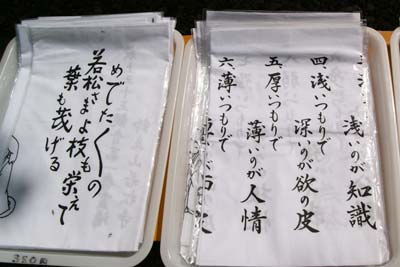 めでたく〳〵の
若松さまよ枝も栄えて
葉も茂げる
浅いのが知識
四、浅いつもりで
深いのが欲の皮
五、厚いつもりで
薄いのが人情
六、薄いつもりで
350円